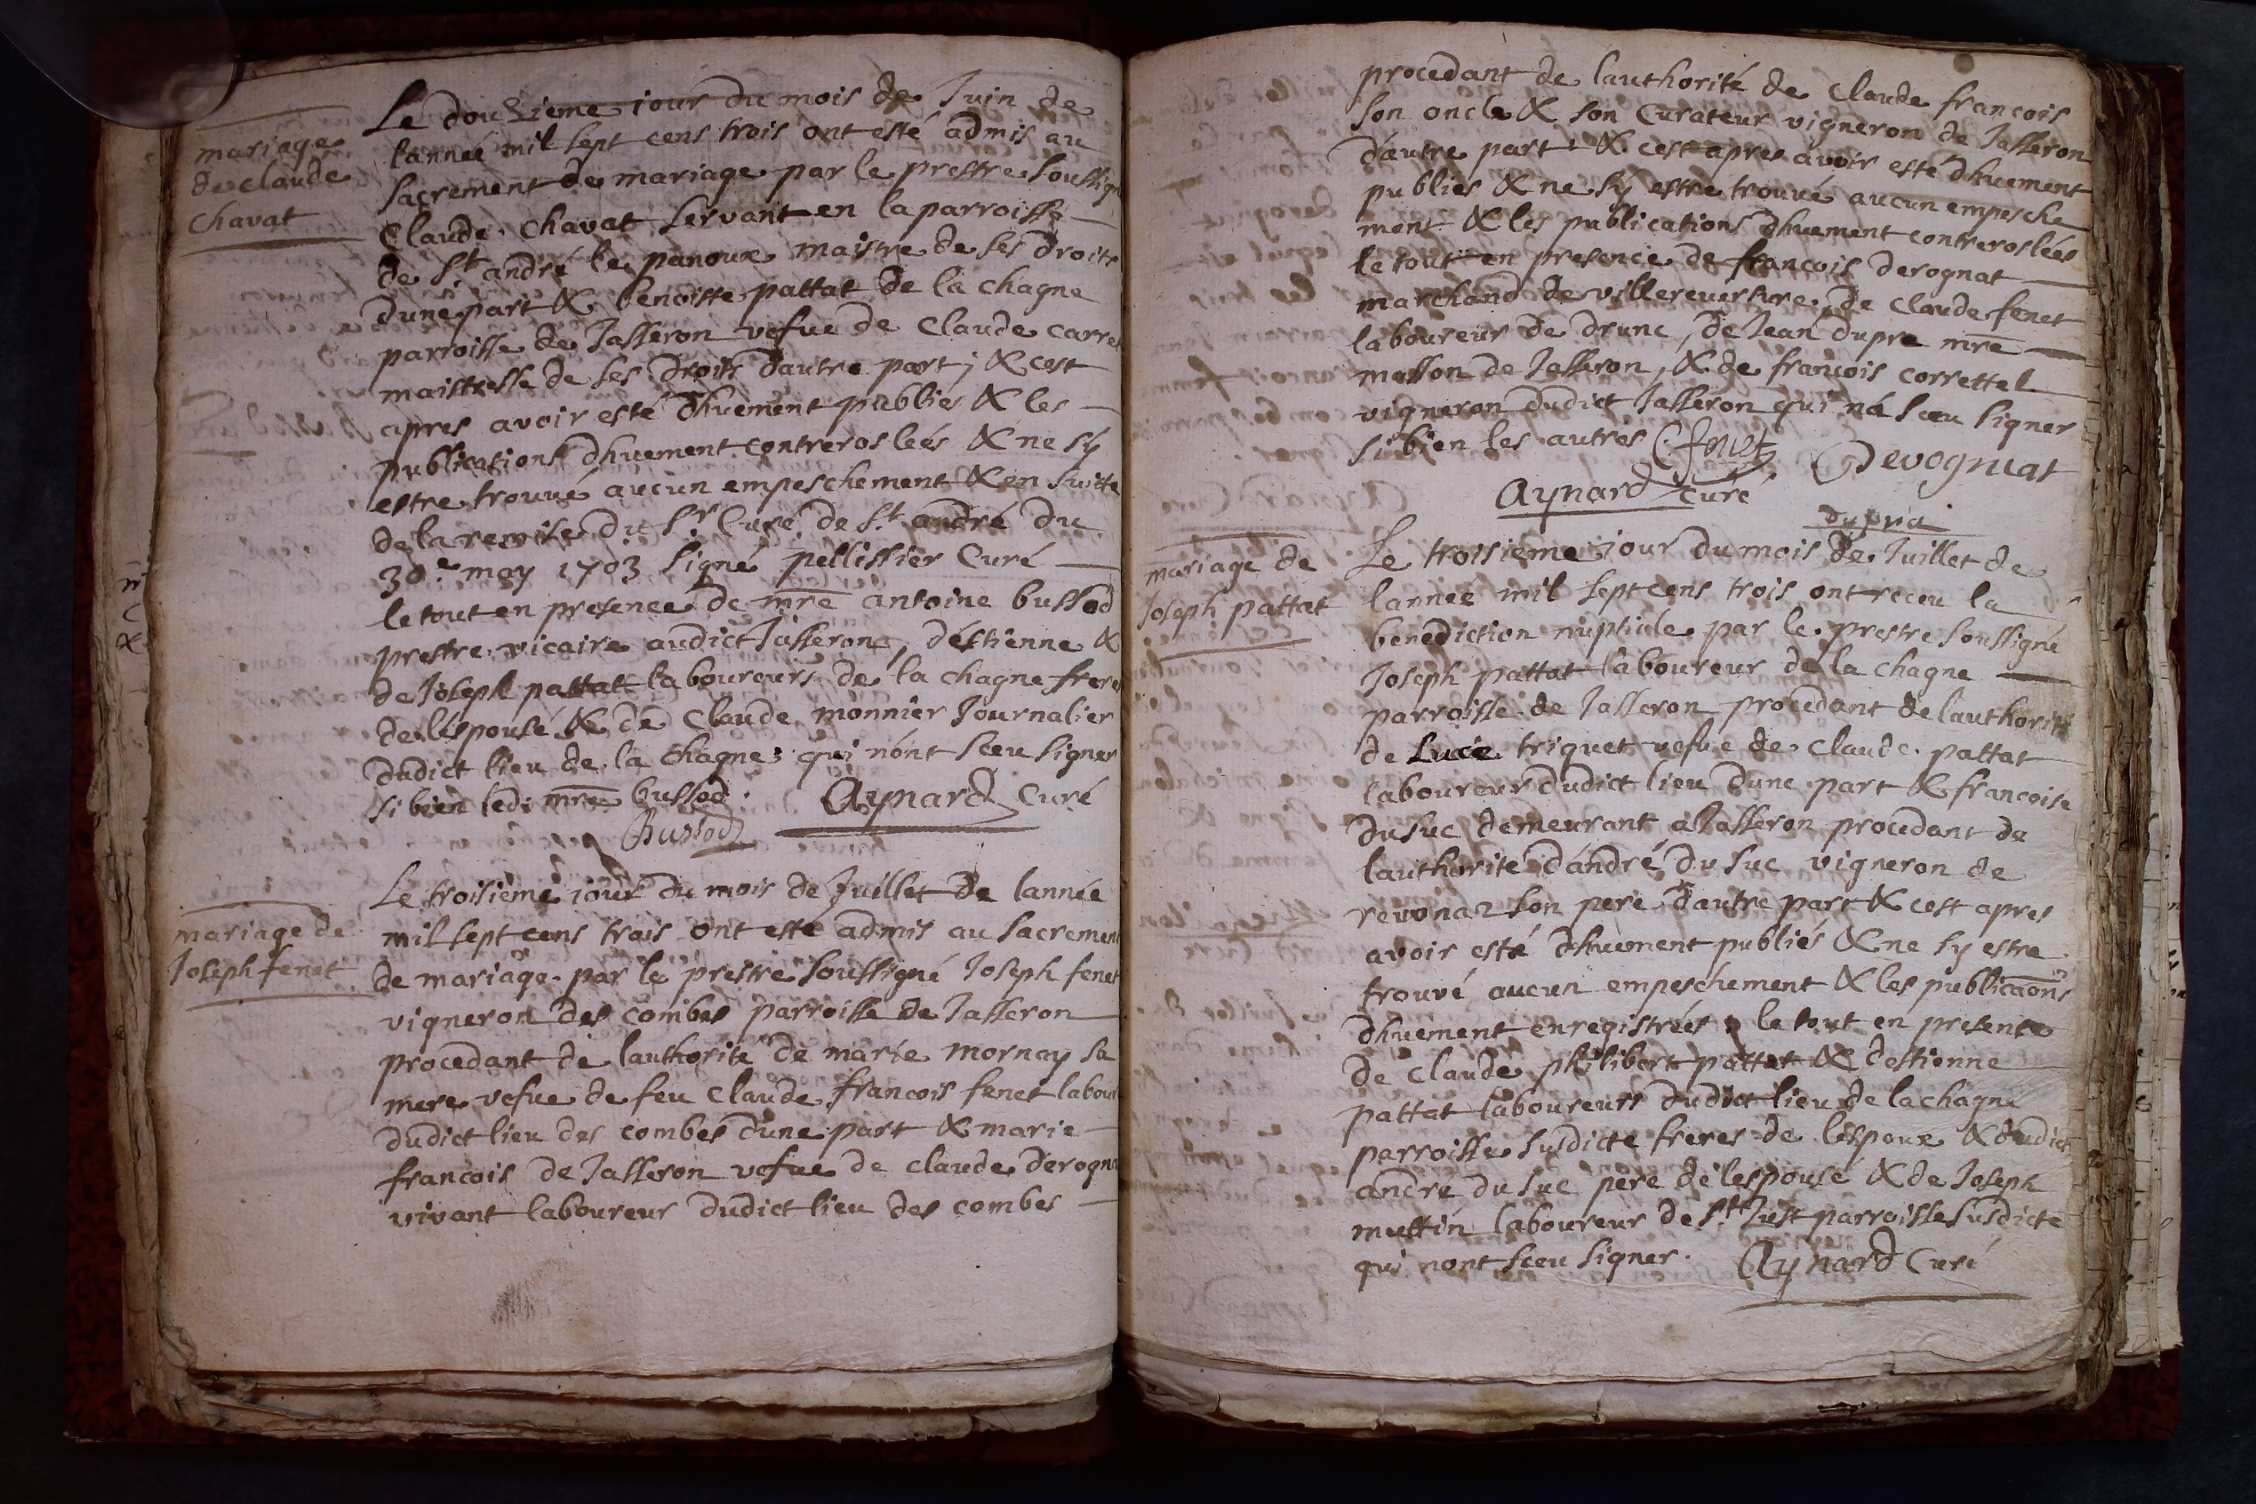 mariage
de claude
Chavat
Le douzieme iour du mois de Juin de
lanneé mil sept cens trois ont esté admis au
sacrement de mariage par le prestre soussigné
Claude Chavat servant en la parroisse
de St andré le panoux maistre de ses droits
dune part & benoiste pattat de la chagne
parroisse de Jasseron vefue de Claude carre
maistresse de ses droits dautre part ; & cest
apres avoir esté dhuement publies & les
publications dhuement contrerosleés & ne sÿ
estre trouué aucun empeschement & en suitte
de la remise du Sr Curé de St andré du
30e may 1703 signé pellissier Curé
le tout en presence de mre antoine bussod
prestre vicaire audict Jasseron, déstienne &
de Joseph pattat laboureurs de la chagne freres
de léspousé & de Claude monnier Journalier
dudict lieu de la chagne ; qui nónt sceu signer
si bien led: mre bussod. Aynard Curé
Bussod
mariage de
Joseph fenet
Le troisiéme iour du mois de Juillet de lannée
mil sept cens trois ont esté admis au sacrement
de mariage par le prestre soussigné Joseph fenet
vigneron des combes parroisse de Jasseron
procedant de lauthorité de marie mornay sa
mere vefue de feu Claude francois fenet labour
dudict lieu des combes dune part & marie
francois de Jasseron vefue de claude derogna
vivant laboureur dudict lieu des combes
procedant de lauthorité de Claude francois
son oncle & son Curateur vigneron de Jasseron
dáutre part & cest apres avoir esté dhuement
publiés & ne sÿ estre trouué aucun empesche
ment & les publications dhuement contrerosleés
le tout en presence de francois derognat
marchand de villereuersure, de Claude fenet
laboureur de drunc, de Jean dupra mre
masson de Jasseron, & de francois correttel
vigneron dudict Jasseron qui ná sceu signer
si bien les autres C fenet Derogniat
Aynard Curé
dupra
mariage de
Joseph pattat
Le troisieme iour du mois de Juillet de
lanneé mil sept cens trois ont receu la
benediction nuptiale par le prestre soussigné
Joseph pattat laboureur de la chagne
parroisse de Jasseron procedant de lauthorité
de Lucie triquet vefue de claude pattat
laboureur dudict lieu dune part & francoise
du suc demeurant a Jasseron procedant de
lauthorité dándré du suc vigneron de
revonaz son pere dautre part & cest apres
avoir esté dhuement publiés & ne sy estre
trouvé aucun empeschement & les publicaons
dhuement enregistreés ; le tout en presence
de claude philibert pattat & destienne
pattat laboureurs dudict lieu de la chagne
parroisse susdicte freres de léspoux & dudict
andré du suc pere de lespousé & de Joseph
muttin laboureur de St Just parroisse susdicte
qui nont sceu signer. Aynard Curé